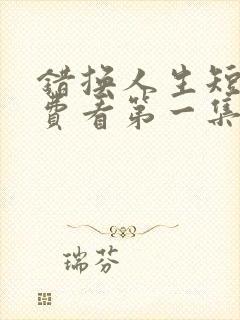 错换人生短
费看第一集
瑞芬